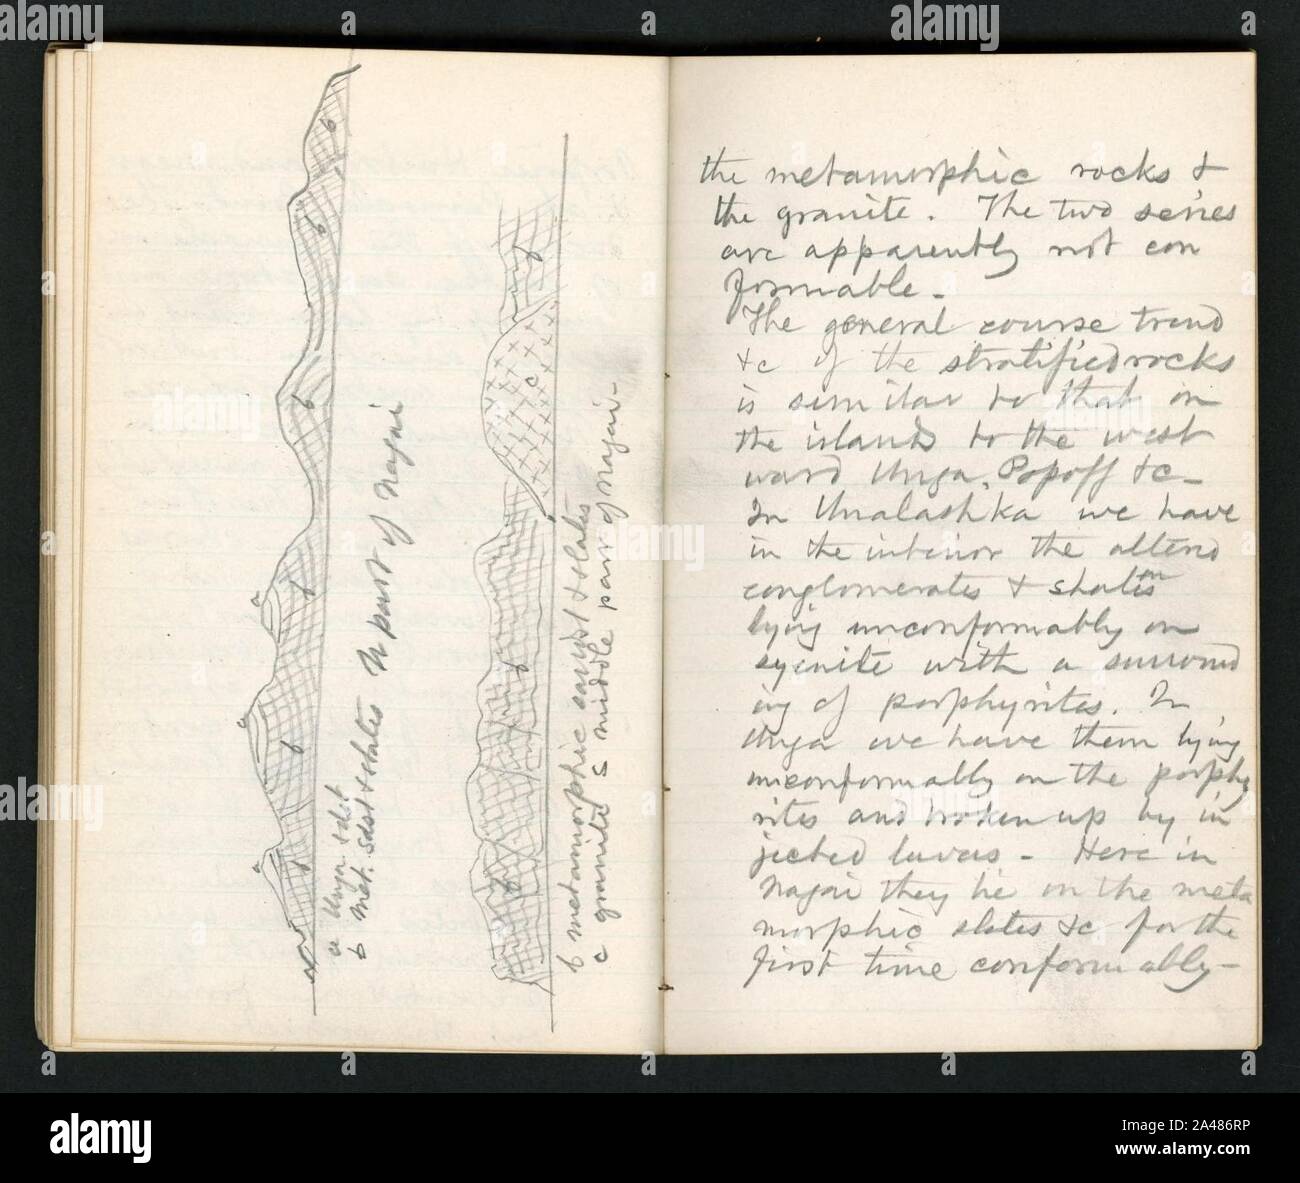 a Unga sdst
b met. sdst & slates N part of Nagai
b metamorphic sandst & slates
c granite S middle part of Nagai-
the metamorphic rocks &
the granite. The two series
are apparently not con
formable-
The general course trend
&c of the stratified rocks
is similar to that on
the islands to the west
ward Unga, Popoff &c-
In Unalashka we have
in the interior the altered
conglomerates &
lying unconformably on
syenite with a surround
ing of porphyrites. In
Unga we have them lying
unconformably on the porphy
rites and broken up by in
jected lavas- Here in
Nagai they lie on the meta
morphic slates &c for the
first time conformably-
alamy
2A486RP